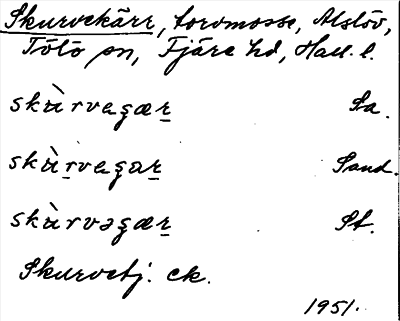 Skurvekärr, torvmosse, Alslöv,
Tölö sn, Fjäre hd, Hall. l.
skùrvegær Sa.
skùrvegar Sand.
skùrvəgær St.
Skurvetj. ek.
1951.